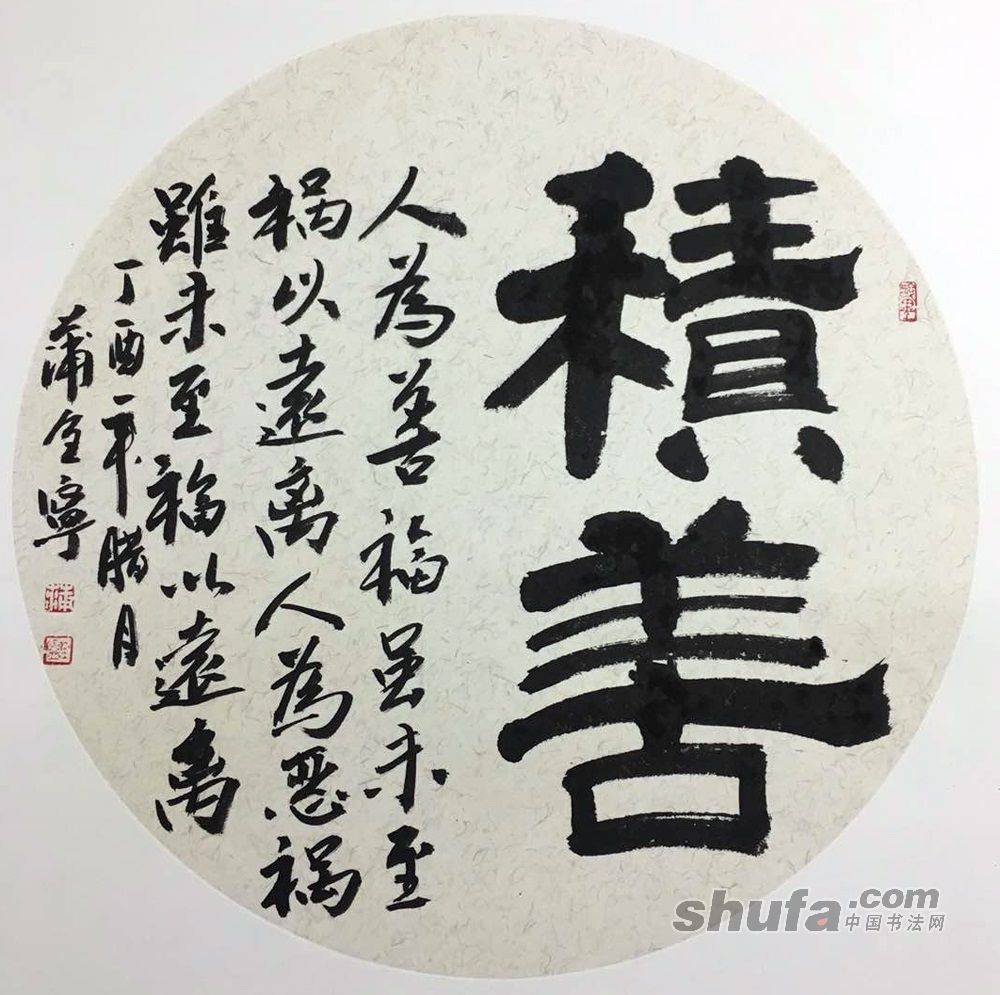 積善
人為善福虽未至
祸以遠离人為恶禍
雖未至福以遠离
丁酉年腊月
蒲全寧
shufa.com
中国书法网